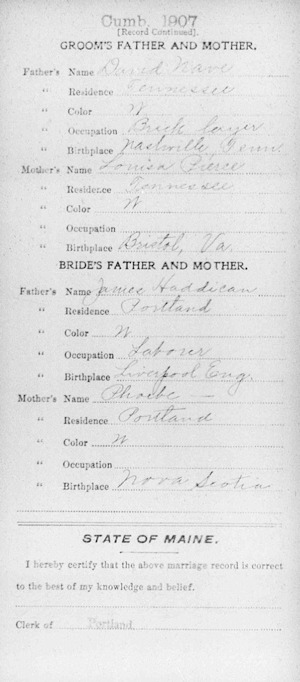 Cumb. 1907
[Record Continued].
GROOM'S FATHER AND MOTHER.
Father's Name David Nave
" Residence Tennessee
" Color W
" Occupation Brick layer
" Birthplace Nashville, Tenn
Mother's Name Louisa Pierce
" Residence Tennessee
" Color W
" Occupation
" Birthplace Bristol, Va.
BRIDE'S FATHER AND MOTHER.
Father's Name James Haddican
" Residence Portland
" Color W
" Occupation Laborer
" Birthplace Liverpool Eng.
Mother's Name Phoebe —
" Residence Portland
" Color W
" Occupation
" Birthplace Nova Scotia
STATE OF MAINE.
I hereby certify that the above marriage record is correct
to the best of my knowledge and belief.
Clerk of Portland